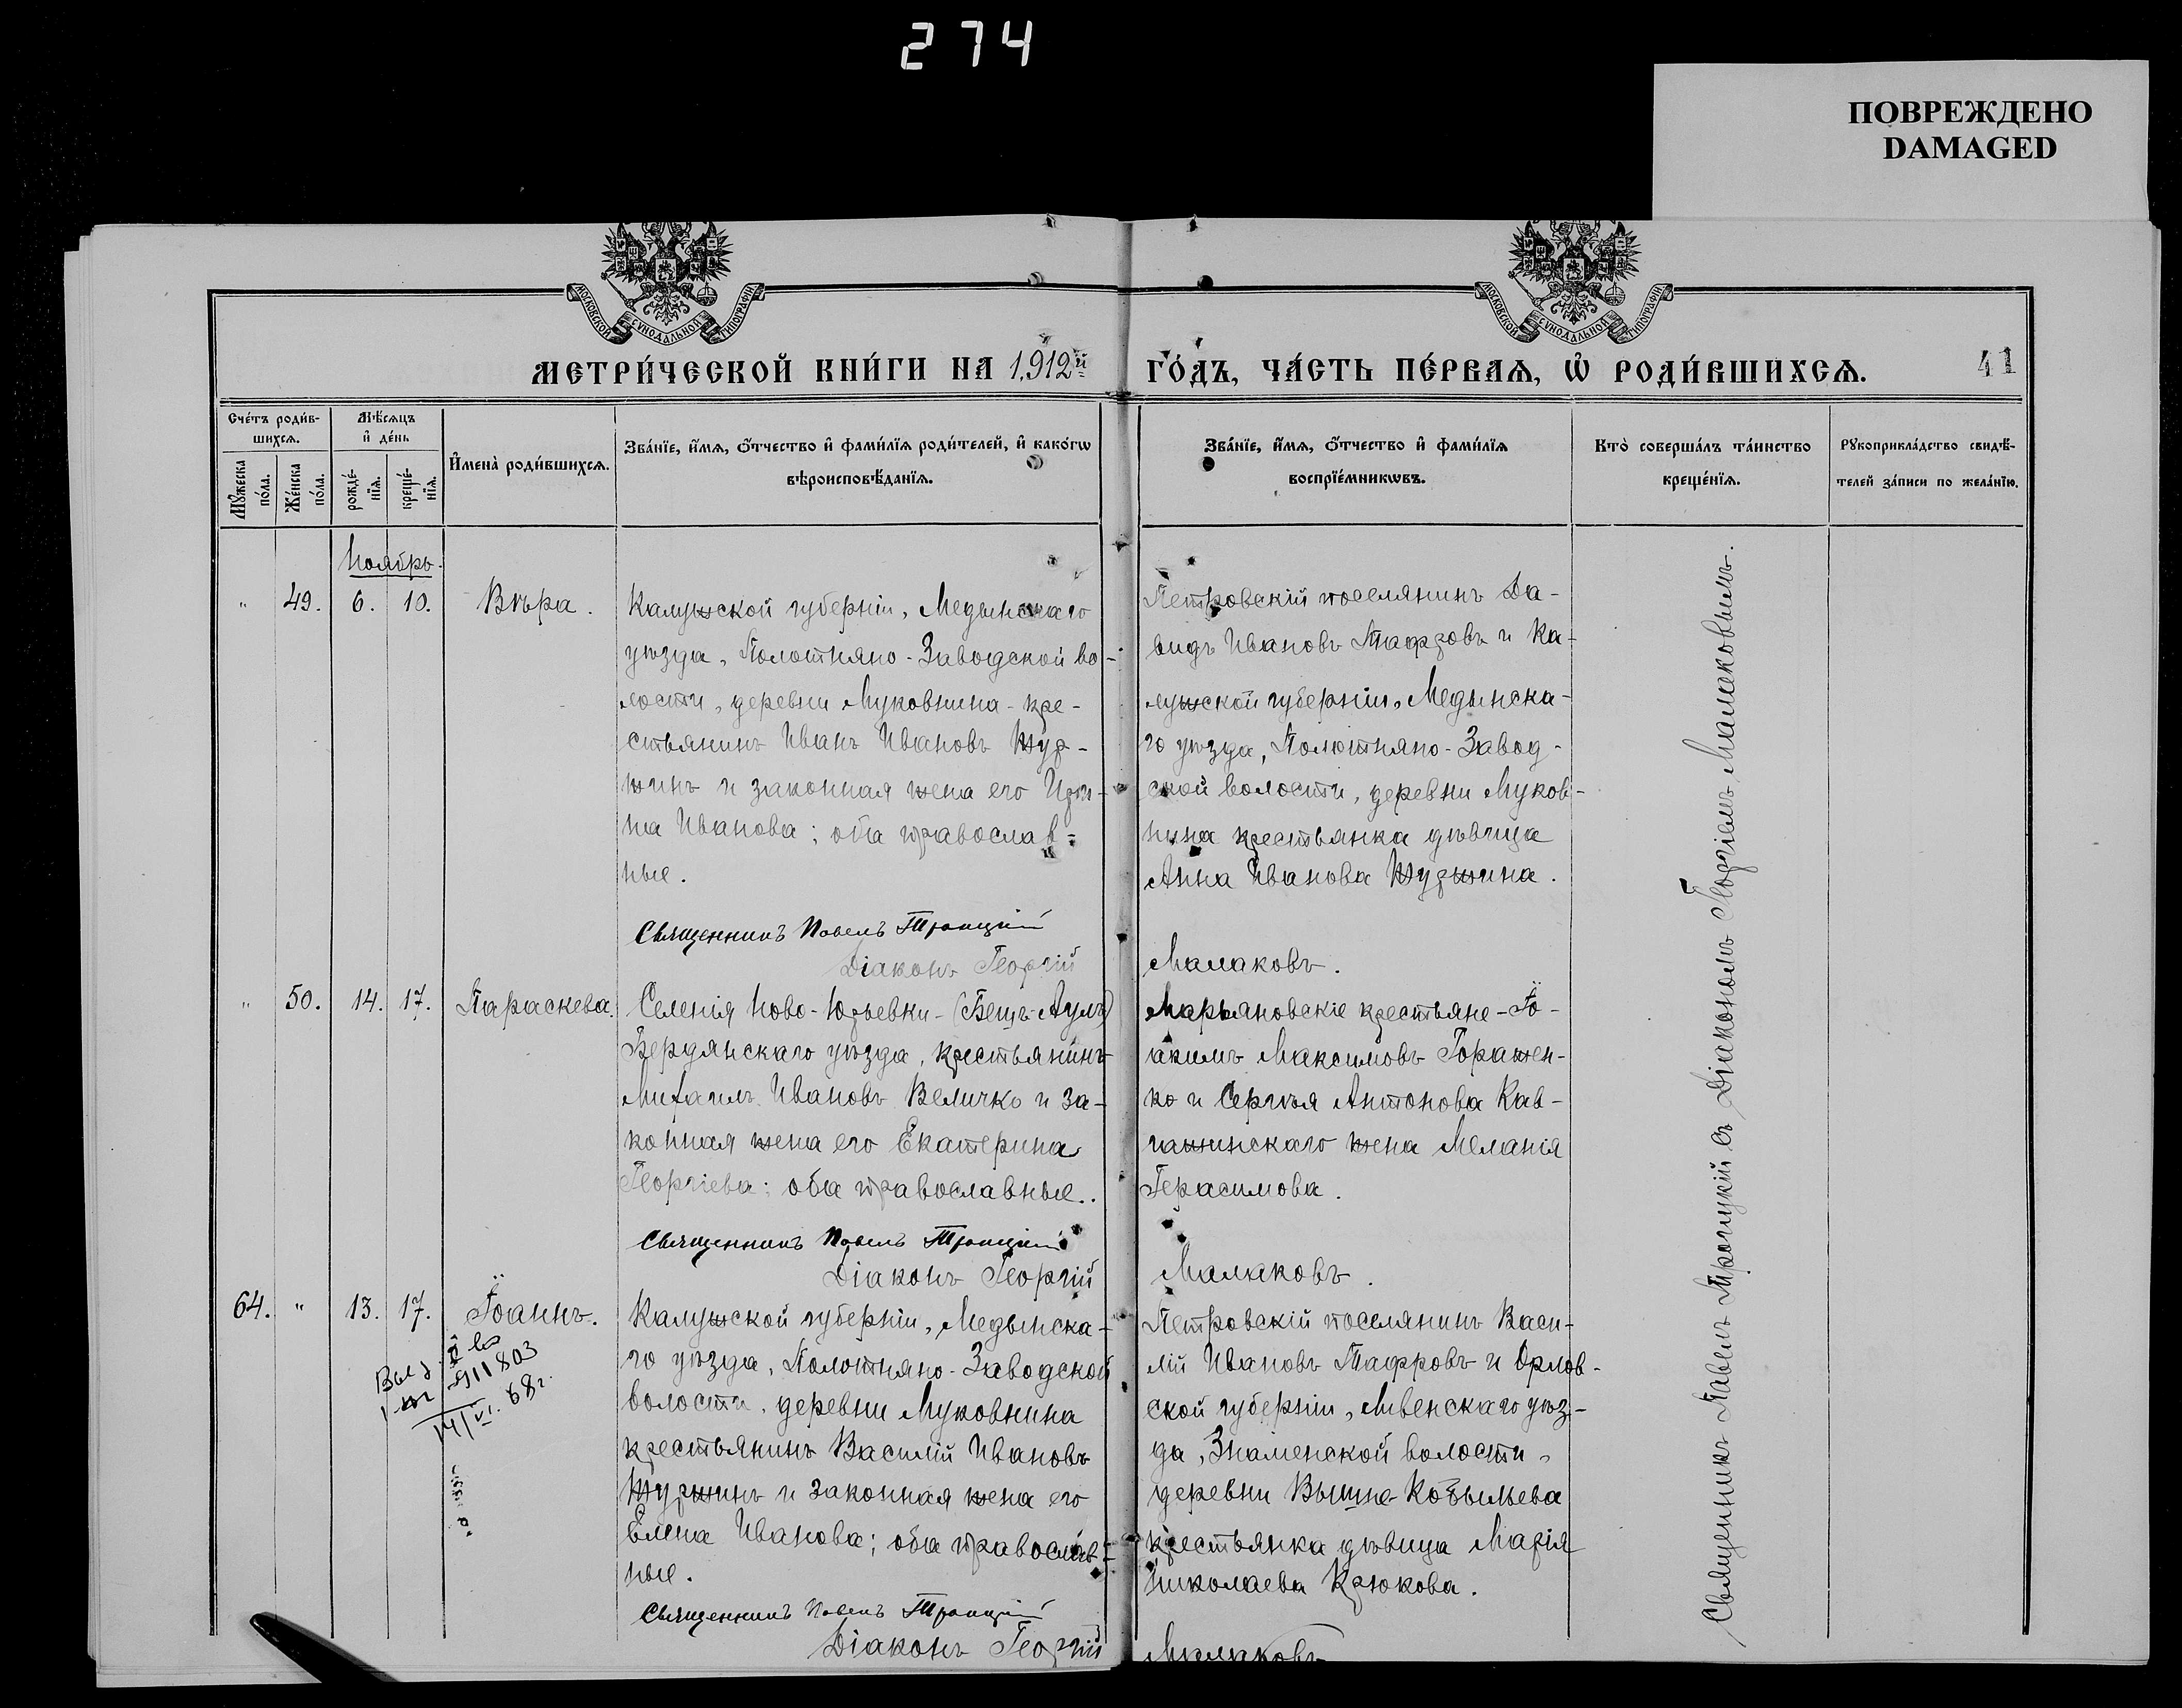 274
ПОВРЕЖДЕНО
DAMAGED
МОСКОВСКОЙ СѴНОДАЛЬНОЙ ТИПОГРАФІИ
МОСКОВСКОЙ СѴНОДАЛЬНОЙ ТИПОГРАФІИ
МЕТРИ́ЧЕСКОЙ КНИ́ГИ НА 1912й ГО́ДЪ, ЧА́СТЬ ПЕ́РВАѦ, Ѡ҆ РОДИ́ВШИХСѦ.
41
Сче́тъ роди́в-
шихсѧ.
Мꙋ́жеска по́ла.
Же́нска по́ла.
Мѣ́сѧцъ
и҆ де́нь
рожде́-
нїѧ.
креще́-
нїѧ.
И҆мена̀ роди́вшихсѧ.
Зва́нїе, и҆́мѧ, ѻ҆́тчество и҆ фами́лїѧ роди́телей, и҆ како́гѡ
вѣроисповѣ́данїѧ.
Зва́нїе, и҆́мѧ, ѻ҆́тчество и҆ фами́лїѧ
воспрїе́мникѡвъ.
Кто̀ соверша́лъ та́инство
креще́нїѧ.
Рꙋкоприкла́дство свидѣ́-
телей за́писи по жела́нїю.
Ноябрь.
" 49. 6. 10. Вѣра.
Калужской губерніи, Медынскаго
уѣзда, Полотняно-Заводской во-
лости, деревни Муковнина - кре-
стьянинъ Иванъ Ивановъ Жур-
жинъ и законная жена его Ири-
на Иванова; оба православ-
ные.
Священникъ Павелъ Троицкій
Діаконъ Георгій
Петровскій поселянинъ Да-
видъ Ивановъ Тафровъ и Ка-
лужской губерніи, Медынска-
го уѣзда, Полотняно-Завод-
ской волости, деревни Муков-
нина крестьянка дѣвица
Анна Иванова Журжина.
Малаковъ.
" 50. 14. 17. Параскева.
Селенія Ново-Юрьевки-(Бешъ-Аулъ)
Бердянскаго уѣзда, крестьянинъ
Михаилъ Ивановъ Величко и за-
конная жена его Екатерина
Георгіева; оба православные.
Священникъ Павелъ Троицкій
Діаконъ Георгій
Марьяновскіе крестьяне - Іо-
акимъ Максимовъ Горажен-
ко и Сергѣя Антонова Кав-
гашинскаго жена Меланія
Герасимова.
Малаковъ.
64. " 13. 17. Іоаннъ.
14/VI. 68г.
Калужской губерніи, Медынска-
го уѣзда, Полотняно-Заводской
волости, деревни Муковнина
крестьянинъ Василій Ивановъ
Журжинъ и законная жена его
Елена Иванова; оба православ-
ные.
Священникъ Павелъ Троицкій
Діаконъ Георгій
Петровскій поселянинъ Васи-
лій Ивановъ Тафровъ и Орлов-
ской губерніи, Ливенскаго уѣз-
да, Знаменской волости,
деревни Вышне-Кобыльева
крестьянка дѣвица Марія
Николаева Крюкова.
Малаковъ
Священникъ Павелъ Троицкій съ Діакономъ Георгіемъ Малаковымъ.